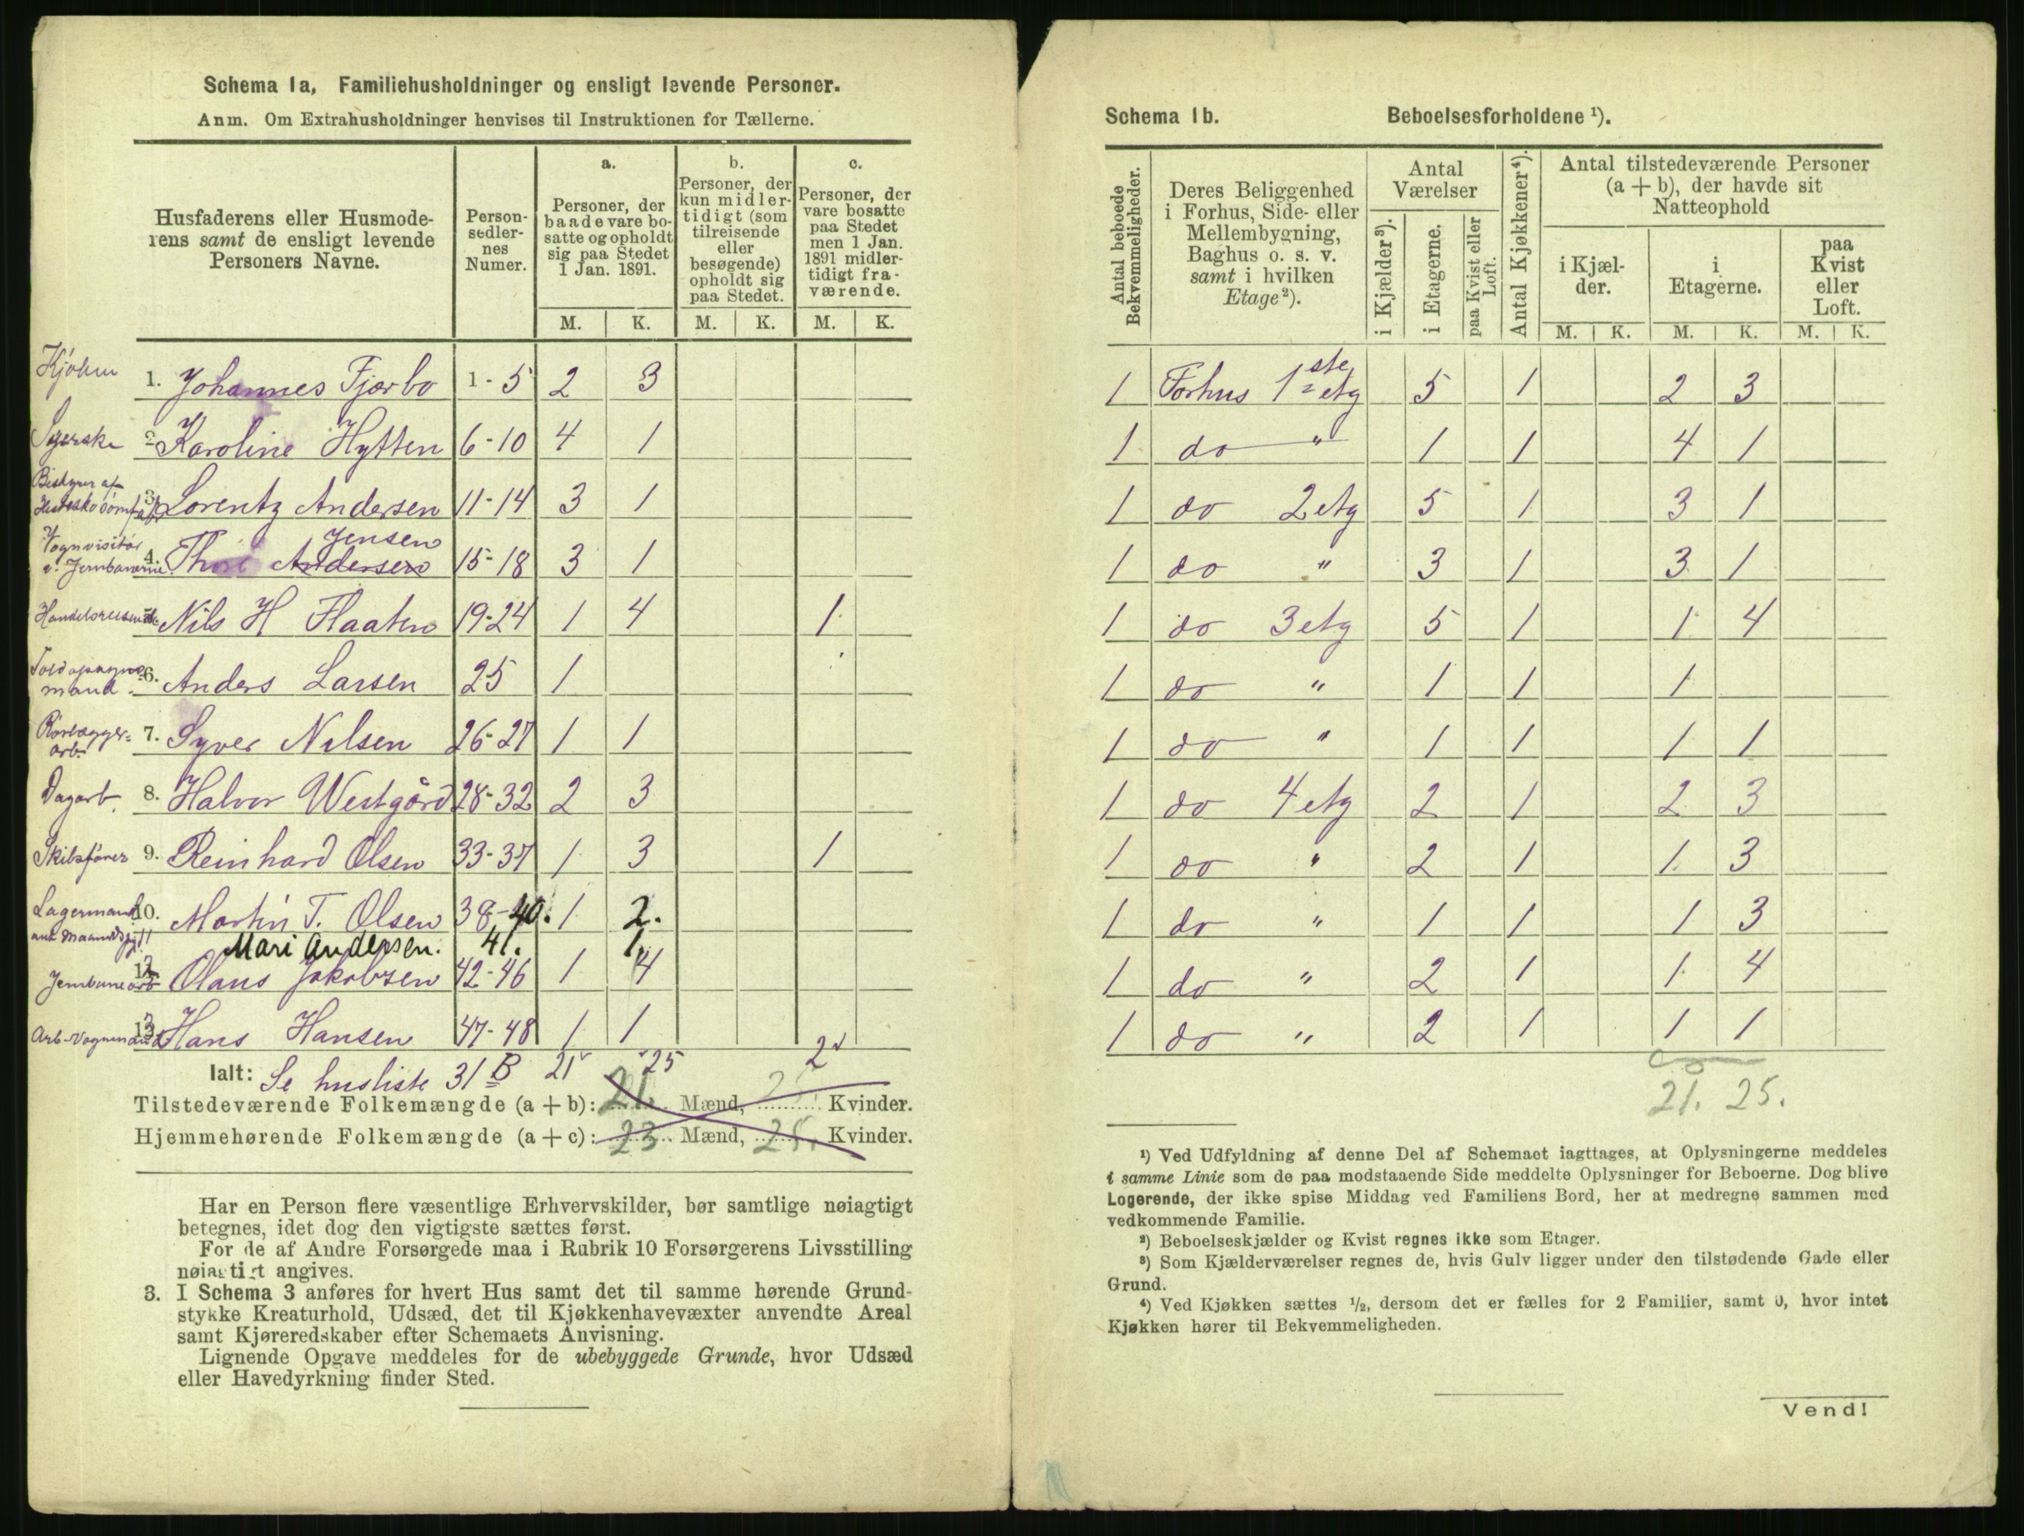 Schema 1a, Familiehusholdninger og ensligt levende Personer.
Anm. Om Extrahusholdninger henvises til Instruktionen for Tællerne.
Husfaderens eller Husmoderens samt de ensligt levende Personers Navne.
Personsedlernes Numer.
a. Personer, der baade vare bosatte og opholdt sig paa Stedet 1 Jan. 1891.
b. Personer, der kun midlertidigt (som tilreisende eller besøgende) opholdt sig paa Stedet.
c. Personer, der vare bosatte paa Stedet men 1 Jan. 1891 midlertidigt fraværende.
M. K. M. K. M. K.
1. Johannes Fjærbo 1-5 2 3
Syerske 2 Karoline Hytten 6-10 4 1
Bestyrer af Hesteskosømfabr 3 Lorentz Andersen 11-14 3 1
Jensen
Vognvisitør v. Jernbanerne 4. Thore Andersen 15-18 3 1
Handelsreisende Nils H Flaaten 19-24 1 4 1
Toldopsynsmand 6. Anders Larsen 25 1
Rørlægger-arb. 7. Syver Nilsen 26-27 1 1
Dagarb. 8. Halvor Westgård 28-32 2 3
Skibsfører 9. Reinhard Olsen 33-37 1 3 1
Lagermand 10. Martin T. Olsen 38-40. 1 2.
11 Mari Andersen. 41. 1.
Jernbanearb 12 Olaus Jakobsen 42-46 1 4
Arb-Vognmand 13 Hans Hansen 47-48 1 1
Ialt: Se husliste 31 B 21 25 2
Tilstedeværende Folkemængde (a + b): 21. Mænd, 25. Kvinder.
Hjemmehørende Folkemængde (a + c): 23 Mænd, 25. Kvinder.
Har en Person flere væsentlige Erhvervskilder, bør samtlige nøiagtigt
betegnes, idet dog den vigtigste sættes først.
For de af Andre Forsørgede maa i Rubrik 10 Forsørgerens Livsstilling
nøiagtigt angives.
3. I Schema 3 anføres for hvert Hus samt det til samme hørende Grund-
stykke Kreaturhold, Udsæd, det til Kjøkkenhavevæxter anvendte Areal
samt Kjøreredskaber efter Schemaets Anvisning.
Lignende Opgave meddeles for de ubebyggede Grunde, hvor Udsæd
eller Havedyrkning finder Sted.
Schema 1b. Beboelsesforholdene ¹).
Antal beboede Bekvemmeligheder.
Deres Beliggenhed i Forhus, Side- eller Mellembygning, Baghus o. s. v. samt i hvilken Etage ²).
Antal Værelser
i Kjælder ³). i Etagerne. paa Kvist eller Loft.
Antal Kjøkkener ⁴).
Antal tilstedeværende Personer (a + b), der havde sit Natteophold
i Kjælder. i Etagerne. paa Kvist eller Loft.
M. K. M. K. M. K.
1 Forhus 1ste etg 5 1 2 3
1 do " 1 1 4 1
1 do 2 etg 5 1 3 1
1 do " 3 1 3 1
1 do 3 etg 5 1 1 4
1 do " 1 1 1
1 do " 1 1 1 1
1 do 4 etg 2 1 2 3
1 do " 2 1 1 3
1 do " 1 1 1 3
1 do " 2 1 1 4
1 do " 2 1 1 1
21. 25.
¹) Ved Udfyldning af denne Del af Schemaet iagttages, at Oplysningerne meddeles
i samme Linie som de paa modstaaende Side meddelte Oplysninger for Beboerne. Dog blive
Logerende, der ikke spise Middag ved Familiens Bord, her at medregne sammen med
vedkommende Familie.
²) Beboelseskjælder og Kvist regnes ikke som Etager.
³) Som Kjælderværelser regnes de, hvis Gulv ligger under den tilstødende Gade eller
Grund.
⁴) Ved Kjøkken sættes ½, dersom det er fælles for 2 Familier, samt 0, hvor intet
Kjøkken hører til Bekvemmeligheden.
Vend!